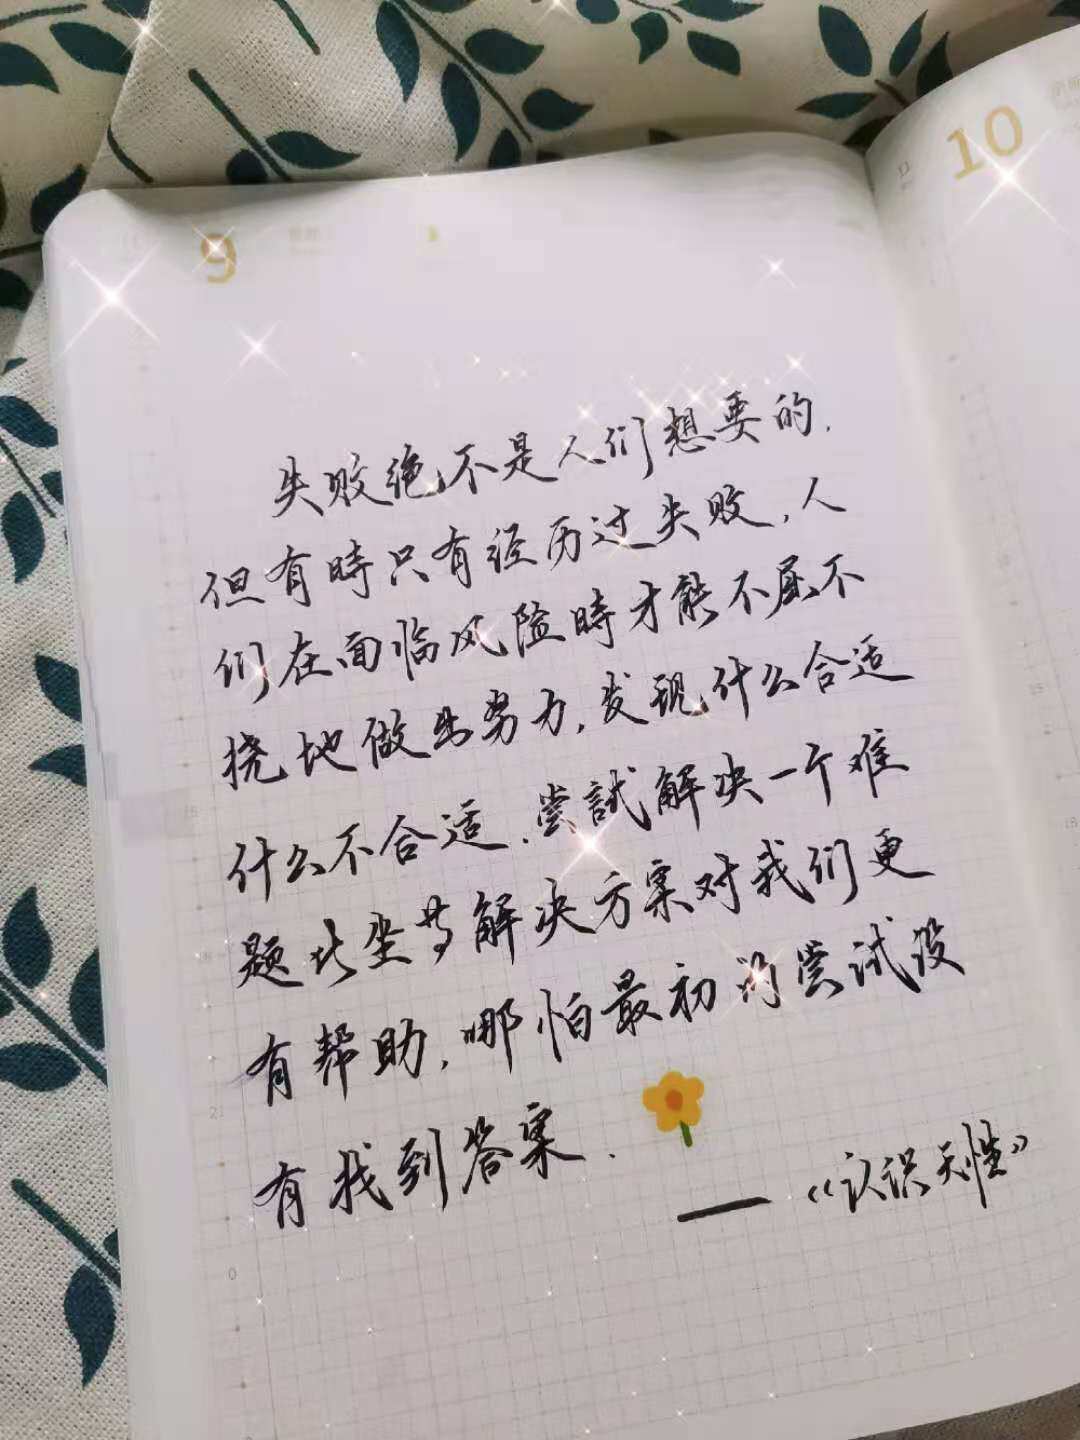 9
10
失败绝不是人们想要的.
但有時只有经历过失败,人
们在面临风险時才能不屈不
挠地做出努力,发现什么合适
什么不合适.尝試解决一个难
题比坐等解决方案对我们更
有帮助,哪怕最初的尝试没
有找到答案.
——《认识天性》
15
21
15
18